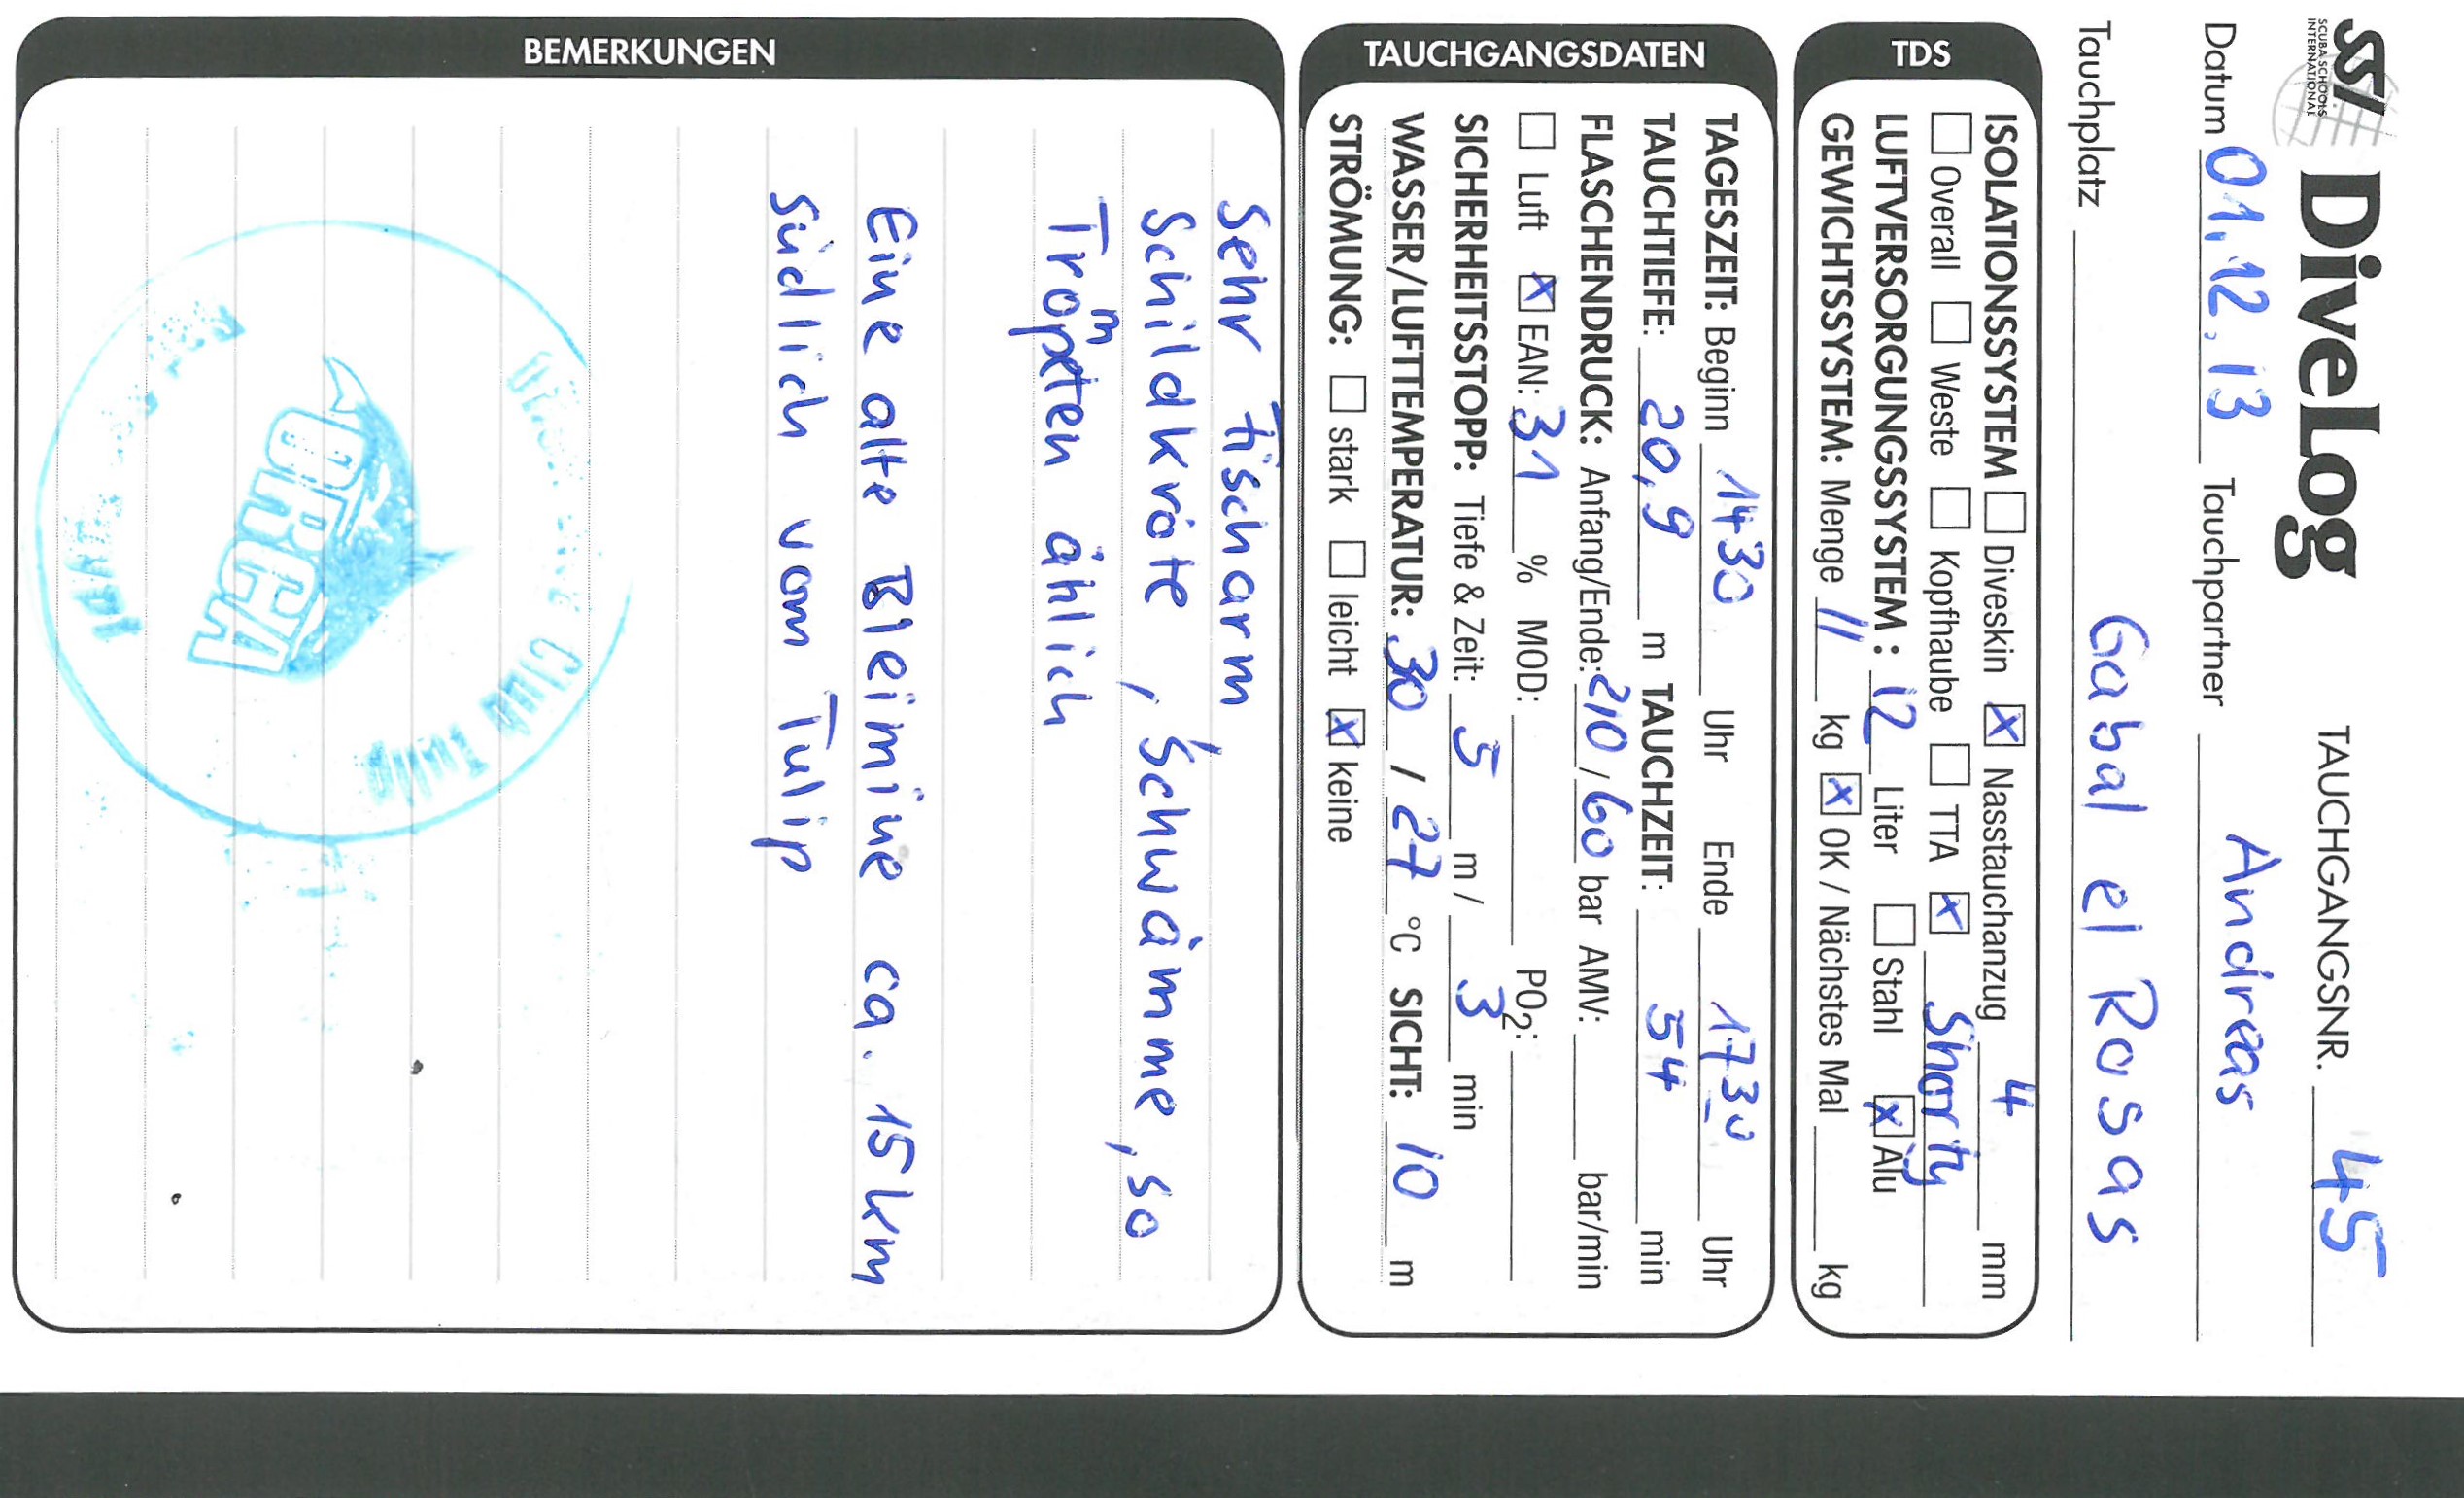 SSI SCUBA SCHOOLS INTERNATIONAL DiveLog TAUCHGANGSNR. 45
Datum 01.12.13 Tauchpartner Andreas
Tauchplatz Gabal el Rosas
TDS
ISOLATIONSSYSTEM ☐ Diveskin ☒ Nasstauchanzug 4 mm
☐ Overall ☐ Weste ☐ Kopfhaube ☐ TTA ☒ Shorty
LUFTVERSORGUNGSSYSTEM: 12 Liter ☐ Stahl ☒ Alu
GEWICHTSSYSTEM: Menge 11 kg ☒ OK / Nächstes Mal kg
TAUCHGANGSDATEN
TAGESZEIT: Beginn 1430 Uhr Ende 1730 Uhr
TAUCHTIEFE: 20,9 m TAUCHZEIT: 54 min
FLASCHENDRUCK: Anfang/Ende: 210 / 60 bar AMV: bar/min
☐ Luft ☒ EAN: 31 % MOD: PO2:
SICHERHEITSSTOPP: Tiefe & Zeit: 5 m / 3 min
WASSER/LUFTTEMPERATUR: 30 / 27 °C SICHT: 10 m
STRÖMUNG: ☐ stark ☐ leicht ☒ keine
BEMERKUNGEN
Sehr fischarm
Schildkröte, Schwämme, so
Trompten ählich
Eine alte Bleimine ca. 15 km
südlich vom Tulip
ORCA
CLUB TULIP